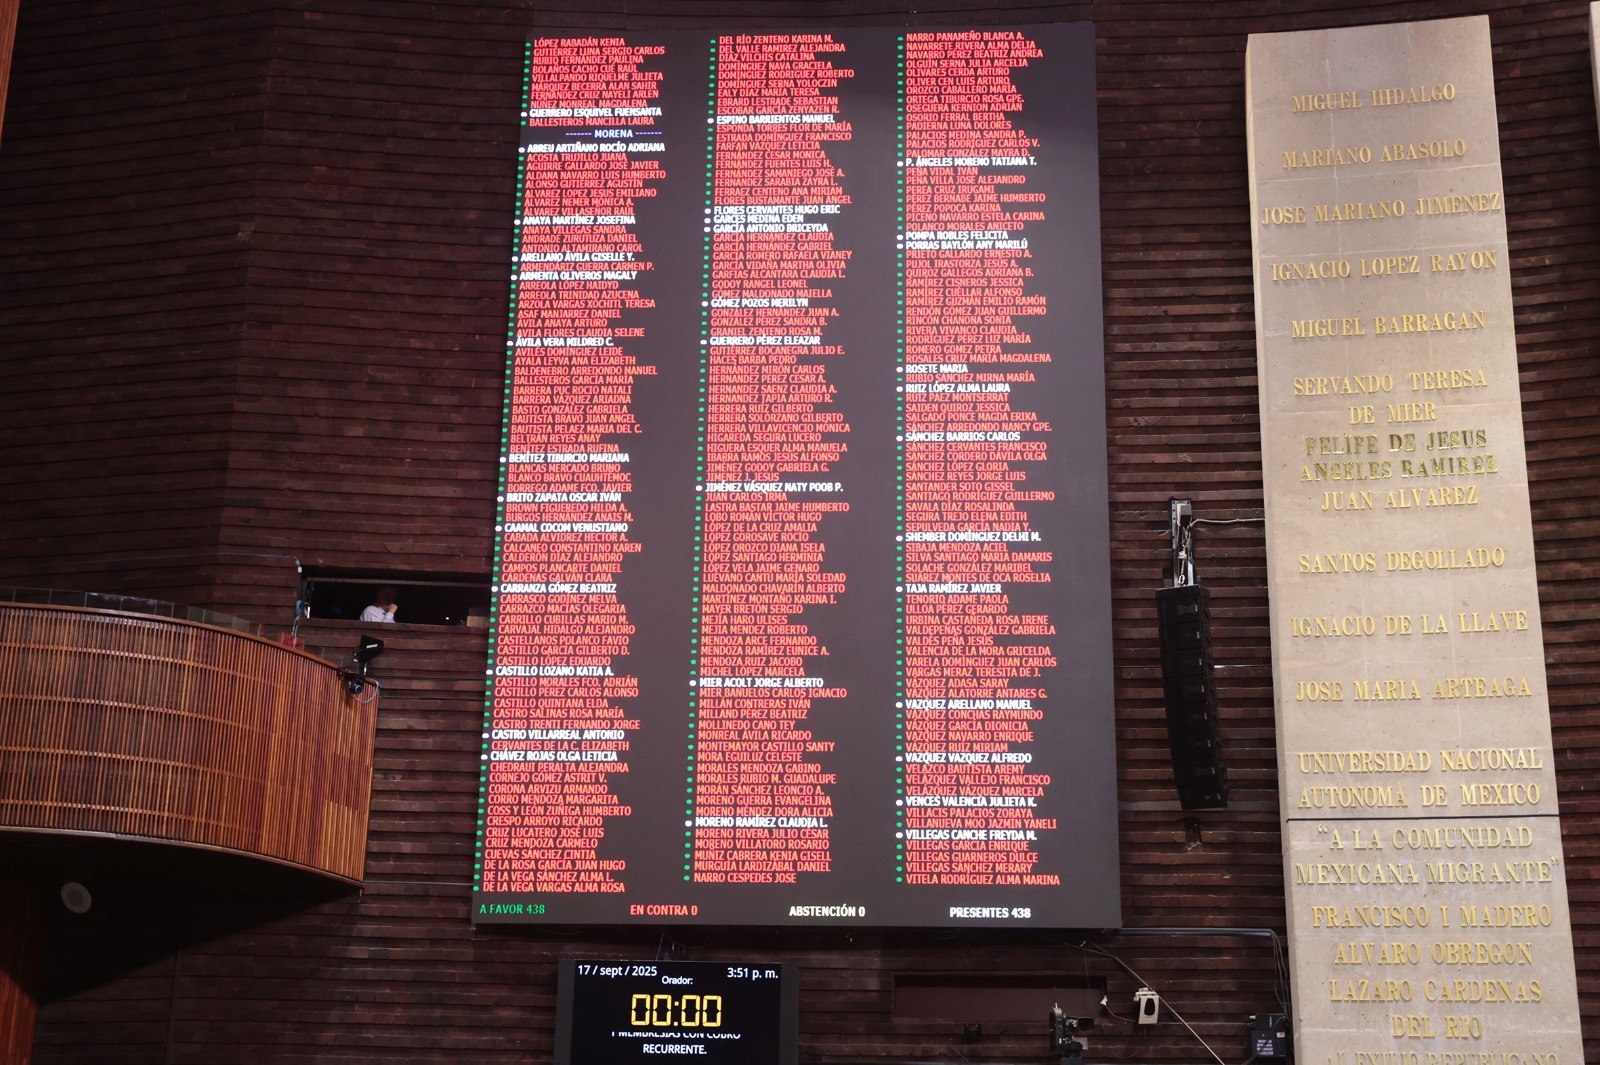 LÓPEZ RABADÁN KENIA
GUTIÉRREZ LUNA SERGIO CARLOS
RUBIO FERNÁNDEZ PAULINA
BOLAÑOS CACHO CUÉ RAÚL
VILLALPANDO RIQUELME JULIETA
MÁRQUEZ BECERRA ALAN SAHIR
FERNÁNDEZ CRUZ NAYELI ARLEN
NÚÑEZ MONREAL MAGDALENA
GUERRERO ESQUIVEL FUENSANTA
BALLESTEROS MANCILLA LAURA
------- MORENA -------
ABREU ARTIÑANO ROCÍO ADRIANA
ACOSTA TRUJILLO JUANA
AGUIRRE GALLARDO JOSÉ JAVIER
ALDANA NAVARRO LUIS HUMBERTO
ALONSO GUTIÉRREZ AGUSTÍN
ÁLVAREZ LÓPEZ JESÚS EMILIANO
ÁLVAREZ NEMER MÓNICA A.
ÁLVAREZ VILLASEÑOR RAÚL
ANAYA MARTÍNEZ JOSEFINA
ANAYA VILLEGAS SANDRA
ANDRADE ZURUTUZA DANIEL
ANTONIO ALTAMIRANO CAROL
ARELLANO ÁVILA GISELLE Y.
ARMENDÁRIZ GUERRA CARMEN P.
ARMENTA OLIVEROS MAGALY
ARREOLA LÓPEZ HAIDYD
ARREOLA TRINIDAD AZUCENA
ARZOLA VARGAS XÓCHITL TERESA
ASAF MANJARREZ DANIEL
ÁVILA ANAYA ARTURO
ÁVILA FLORES CLAUDIA SELENE
ÁVILA VERA MILDRED C.
AVILÉS DOMÍNGUEZ LEIDE
AYALA LEYVA ANA ELIZABETH
BALDENEBRO ARREDONDO MANUEL
BALLESTEROS GARCÍA MARÍA
BARRERA PUC ROCÍO NATALI
BARRERA VÁZQUEZ ARIADNA
BASTO GONZÁLEZ GABRIELA
BAUTISTA BRAVO JUAN ÁNGEL
BAUTISTA PELÁEZ MARÍA DEL C.
BELTRÁN REYES ANAY
BENÍTEZ ESTRADA RUFINA
BENÍTEZ TIBURCIO MARIANA
BLANCAS MERCADO BRUNO
BLANCO BRAVO CUAUHTÉMOC
BORREGO ADAME FCO. JAVIER
BRITO ZAPATA OSCAR IVÁN
BROWN FIGUEREDO HILDA A.
BURGOS HERNÁNDEZ ANAIS M.
CAAMAL COCOM VENUSTIANO
CABADA ALVÍDREZ HÉCTOR A.
CALCÁNEO CONSTANTINO KAREN
CALDERÓN DÍAZ ALEJANDRO
CAMPOS PLANCARTE DANIEL
CÁRDENAS GALVÁN CLARA
CARRANZA GÓMEZ BEATRIZ
CARRASCO GODÍNEZ MELVA
CARRAZCO MACÍAS OLEGARIA
CARRILLO CUBILLAS MARIO M.
CARVAJAL HIDALGO ALEJANDRO
CASTELLANOS POLANCO FAVIO
CASTILLO GARCÍA GILBERTO D.
CASTILLO LÓPEZ EDUARDO
CASTILLO LOZANO KATIA A.
CASTILLO MORALES FCO. ADRIÁN
CASTILLO PÉREZ CARLOS ALONSO
CASTILLO QUINTANA ELDA
CASTRO SALINAS ROSA MARÍA
CASTRO TRENTI FERNANDO JORGE
CASTRO VILLARREAL ANTONIO
CERVANTES DE LA C. ELIZABETH
CHÁVEZ ROJAS OLGA LETICIA
CHEDRAUI PERALTA ALEJANDRA
CORNEJO GÓMEZ ASTRIT V.
CORONA ARVIZU ARMANDO
CORRO MENDOZA MARGARITA
COSS Y LEÓN ZÚÑIGA HUMBERTO
CRESPO ARROYO RICARDO
CRUZ LUCATERO JOSÉ LUIS
CRUZ MENDOZA CARMELO
CUEVAS SÁNCHEZ CINTIA
DE LA ROSA GARCÍA JUAN HUGO
DE LA VEGA SÁNCHEZ ALMA L.
DE LA VEGA VARGAS ALMA ROSA
DEL RÍO ZENTENO KARINA M.
DEL VALLE RAMÍREZ ALEJANDRA
DÍAZ VILCHIS CATALINA
DOMÍNGUEZ NAVA GRACIELA
DOMÍNGUEZ RODRÍGUEZ ROBERTO
DOMÍNGUEZ SERNA YOLOCZIN
EALY DÍAZ MARÍA TERESA
EBRARD LESTRADE SEBASTIAN
ESCOBAR GARCÍA ZENYAZEN R.
ESPINO BARRIENTOS MANUEL
ESPONDA TORRES FLOR DE MARÍA
ESTRADA DOMÍNGUEZ FRANCISCO
FARFÁN VÁZQUEZ LETICIA
FERNÁNDEZ CÉSAR MÓNICA
FERNÁNDEZ FUENTES LUIS H.
FERNÁNDEZ SAMANIEGO JOSÉ A.
FERNÁNDEZ SARABIA ZAYRA L.
FERRÁEZ CENTENO ANA MIRIAM
FLORES BUSTAMANTE JUAN ÁNGEL
FLORES CERVANTES HUGO ERIC
GARCÉS MEDINA EDEN
GARCÍA ANTONIO BRICEYDA
GARCÍA HERNÁNDEZ CLAUDIA
GARCÍA HERNÁNDEZ GABRIEL
GARCÍA ROMERO RAFAELA VIANEY
GARCÍA VIDAÑA MARTHA OLIVIA
GARFIAS ALCÁNTARA CLAUDIA L.
GODOY RANGEL LEONEL
GÓMEZ MALDONADO MAIELLA
GÓMEZ POZOS MERILYN
GONZÁLEZ HERNÁNDEZ JUAN A.
GONZÁLEZ PÉREZ SANDRA B.
GRANIEL ZENTENO ROSA M.
GUERRERO PÉREZ ELEAZAR
GUTIÉRREZ BOCANEGRA JULIO E.
HACES BARBA PEDRO
HERNÁNDEZ MIRÓN CARLOS
HERNÁNDEZ PÉREZ CÉSAR A.
HERNÁNDEZ SÁENZ CLAUDIA A.
HERNÁNDEZ TAPIA ARTURO R.
HERRERA RUÍZ GILBERTO
HERRERA SOLÓRZANO GILBERTO
HERRERA VILLAVICENCIO MÓNICA
HIGAREDA SEGURA LUCERO
HIGUERA ESQUER ALMA MANUELA
IBARRA RAMOS JESÚS ALFONSO
JIMÉNEZ GODOY GABRIELA G.
JIMÉNEZ J. JESÚS
JIMÉNEZ VÁSQUEZ NATY POOB P.
JUAN CARLOS IRMA
LASTRA BASTAR JAIME HUMBERTO
LOBO ROMÁN VÍCTOR HUGO
LÓPEZ DE LA CRUZ AMALIA
LÓPEZ GOROSAVE ROCÍO
LÓPEZ OROZCO DIANA ISELA
LÓPEZ SANTIAGO HERMINIA
LÓPEZ VELA JAIME GENARO
LUÉVANO CANTÚ MARÍA SOLEDAD
MALDONADO CHAVARÍN ALBERTO
MARTÍNEZ MONTAÑO KARINA I.
MAYER BRETÓN SERGIO
MEJÍA HARO ULISES
MEJÍA MÉNDEZ ROBERTO
MENDOZA ARCE FERNANDO
MENDOZA RAMÍREZ EUNICE A.
MENDOZA RUIZ JACOBO
MICHEL LÓPEZ MARCELA
MIER ACOLT JORGE ALBERTO
MIER BAÑUELOS CARLOS IGNACIO
MILLÁN CONTRERAS IVÁN
MILLAND PÉREZ BEATRIZ
MOLLINEDO CANO TEY
MONREAL ÁVILA RICARDO
MONTEMAYOR CASTILLO SANTY
MORA EGUILUZ CELESTE
MORALES MENDOZA GABINO
MORALES RUBIO M. GUADALUPE
MORÁN SÁNCHEZ LEONCIO A.
MORENO GUERRA EVANGELINA
MORENO MÉNDEZ DORA ALICIA
MORENO RAMÍREZ CLAUDIA L.
MORENO RIVERA JULIO CÉSAR
MORENO VILLATORO ROSARIO
MUÑIZ CABRERA KENIA GISELL
MURGUÍA LARDIZÁBAL DANIEL
NARRO CÉSPEDES JOSÉ
NARRO PANAMEÑO BLANCA A.
NAVARRETE RIVERA ALMA DELIA
NAVARRO PÉREZ BEATRIZ ANDREA
OLGUÍN SERNA JULIA ARCELIA
OLIVARES CERDA ARTURO
OLIVER CEN LUIS ARTURO
OROZCO CABALLERO MARÍA
ORTEGA TIBURCIO ROSA GPE.
OSEGUERA KERNION ADRIÁN
OSORIO FERRAL BERTHA
PADIERNA LUNA DOLORES
PALACIOS MEDINA SANDRA P.
PALACIOS RODRÍGUEZ CARLOS V.
PALOMAR GONZÁLEZ MAYRA D.
P. ÁNGELES MORENO TATIANA T.
PEÑA VIDAL IVÁN
PEÑA VILLA JOSÉ ALEJANDRO
PEREA CRUZ IRUGAMI
PÉREZ BERNABE JAIME HUMBERTO
PÉREZ POPOCA KARINA
PICENO NAVARRO ESTELA CARINA
POLANCO MORALES ANICETO
POMPA ROBLES FELÍCITA
PORRAS BAYLÓN ANY MARILÚ
PRIETO GALLARDO ERNESTO A.
PUJOL IRASTORZA JESÚS A.
QUIROZ GALLEGOS ADRIANA B.
RAMÍREZ CISNEROS JESSICA
RAMÍREZ CUÉLLAR ALFONSO
RAMÍREZ GUZMÁN EMILIO RAMÓN
RENDÓN GÓMEZ JUAN GUILLERMO
RINCÓN CHANONA SONIA
RIVERA VIVANCO CLAUDIA
RODRÍGUEZ PÉREZ LUZ MARÍA
ROMERO GÓMEZ PETRA
ROSALES CRUZ MARÍA MAGDALENA
ROSETE MARIA
RUBIO SÁNCHEZ MIRNA MARÍA
RUIZ LÓPEZ ALMA LAURA
RUIZ PÁEZ MONTSERRAT
SAIDEN QUIROZ JESSICA
SALGADO PONCE MAGDA ERIKA
SÁNCHEZ ARREDONDO NANCY GPE.
SÁNCHEZ BARRIOS CARLOS
SÁNCHEZ CERVANTES FRANCISCO
SÁNCHEZ CORDERO DÁVILA OLGA
SÁNCHEZ LÓPEZ GLORIA
SÁNCHEZ REYES JORGE LUIS
SANTANDER SOTO GISSEL
SANTIAGO RODRÍGUEZ GUILLERMO
SAVALA DÍAZ ROSALINDA
SEGURA TREJO ELENA EDITH
SEPÚLVEDA GARCÍA NADIA Y.
SHEMBER DOMÍNGUEZ DELHI M.
SIBAJA MENDOZA ACIEL
SILVA SANTIAGO MARÍA DAMARIS
SOLACHE GONZÁLEZ MARIBEL
SUÁREZ MONTES DE OCA ROSELIA
TAJA RAMÍREZ JAVIER
TENORIO ADAME PAOLA
ULLOA PÉREZ GERARDO
URBINA CASTAÑEDA ROSA IRENE
VALDEPEÑAS GONZÁLEZ GABRIELA
VALDÉS PEÑA JESÚS
VALENCIA DE LA MORA GRICELDA
VARELA DOMÍNGUEZ JUAN CARLOS
VARGAS MERAZ TERESITA DE J.
VÁZQUEZ ADASA SARAY
VÁZQUEZ ALATORRE ANTARES G.
VAZQUEZ ARELLANO MANUEL
VÁZQUEZ CONCHAS RAYMUNDO
VÁZQUEZ GARCÍA DIONICIA
VÁZQUEZ NAVARRO ENRIQUE
VÁZQUEZ RUÍZ MIRIAM
VÁZQUEZ VÁZQUEZ ALFREDO
VELAZCO BAUTISTA AREMY
VELÁZQUEZ VALLEJO FRANCISCO
VELÁZQUEZ VÁZQUEZ MARCELA
VENCES VALENCIA JULIETA K.
VILLACIS PALACIOS ZORAYA
VILLANUEVA MOO JAZMÍN YANELI
VILLEGAS CANCHÉ FREYDA M.
VILLEGAS GARCÍA ENRIQUE
VILLEGAS GUARNEROS DULCE
VILLEGAS SÁNCHEZ MERARY
VITELA RODRÍGUEZ ALMA MARINA
A FAVOR 438 EN CONTRA 0 ABSTENCIÓN 0 PRESENTES 438
17 / sept / 2025 3:51 p. m.
Orador:
00:00
MEMBRESÍAS CON COBRO
RECURRENTE.
MIGUEL HIDALGO
MARIANO ABASOLO
JOSE MARIANO JIMENEZ
IGNACIO LOPEZ RAYON
MIGUEL BARRAGAN
SERVANDO TERESA
DE MIER
FELIPE DE JESUS
ANGELES RAMIREZ
JUAN ALVAREZ
SANTOS DEGOLLADO
IGNACIO DE LA LLAVE
JOSE MARIA ARTEAGA
UNIVERSIDAD NACIONAL
AUTONOMA DE MEXICO
"A LA COMUNIDAD
MEXICANA MIGRANTE"
FRANCISCO I MADERO
ALVARO OBREGON
LAZARO CARDENAS
DEL RIO
AL EXILIO REPUBLICANO